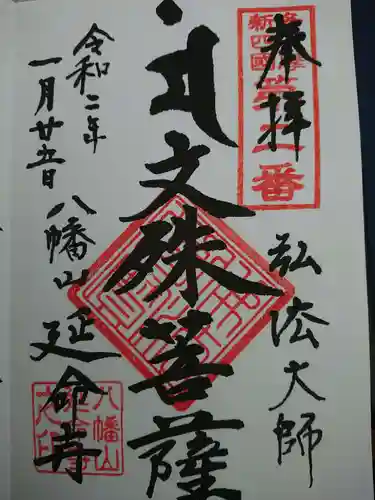 奉拝
弘法大師
文殊菩薩
八幡山 延命寺
令和二年
一月廿五日
新四國
番
八幡山